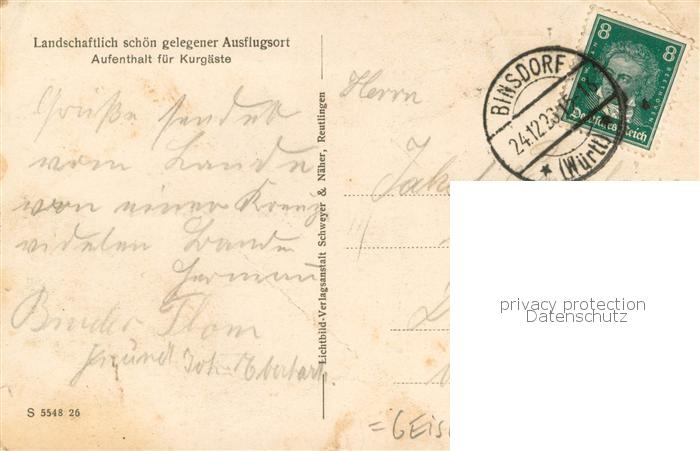 Landschaftlich schön gelegener Ausflugsort
Aufenthalt für Kurgäste
Grüße sendet
vom Lande
von einer Kreuz
fidelen Bande
Herman
Bruder
Joh. Eberhart
S 5548 26
Lichtbild-Verlagsanstalt Schweyer & Näher, Reutlingen
Herrn
Jak
= GEIS
BINSDORF
24.12.26
(Württ)
8 8
BEETHOVEN
Deutsches Reich
privacy protection
Datenschutz